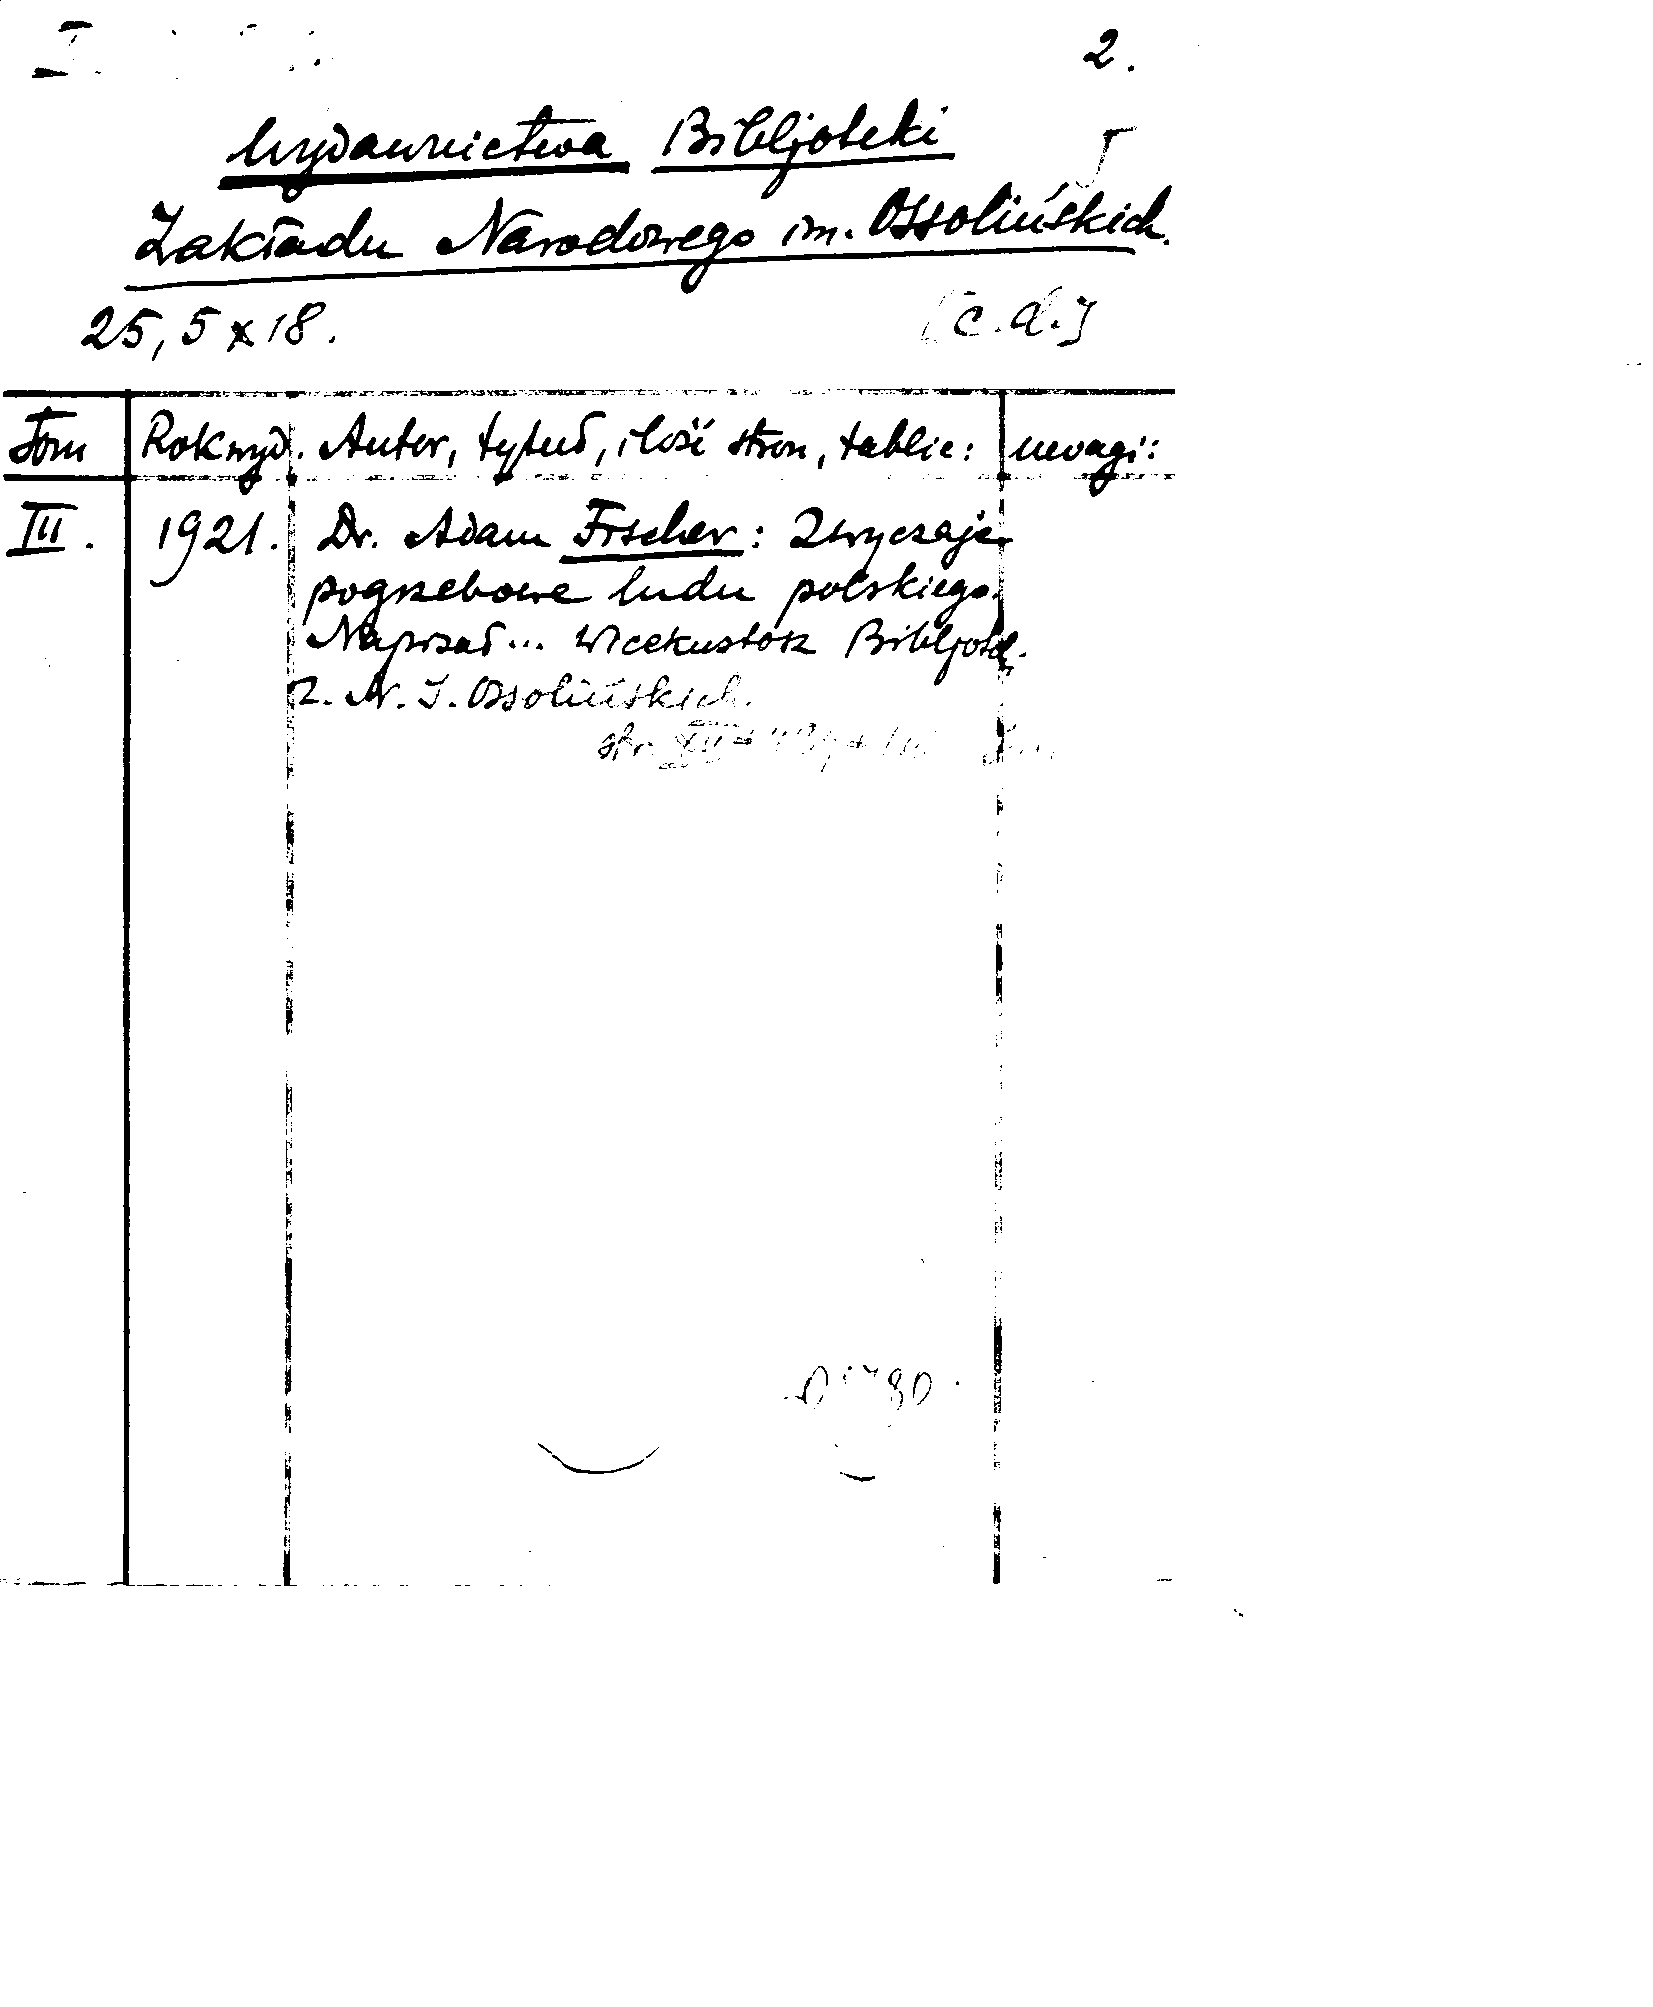 I
2.
Wydawnictwa Bibljoteki
Zakładu Narodowego im. Ossolińskich.
25,5 x 18.
[c.d.]
Tom Rok wyd. Autor, tytuł, ilość stron, tablic: uwagi:
III. 1921. Dr. Adam Fischer: Zwyczaje
pogrzebowe ludu polskiego.
Napisał... wicekustosz Bibljotek.
Z. N. I. Ossolińskich.
str. XII +